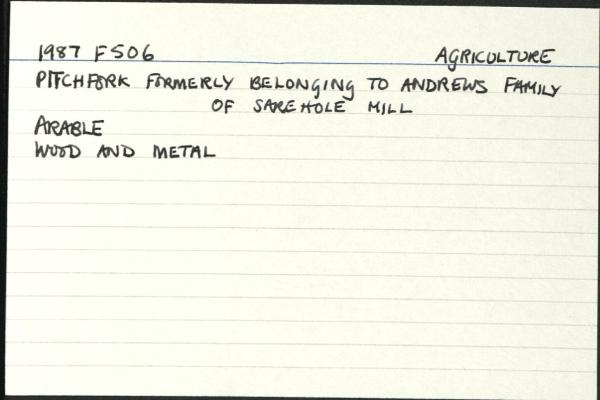 1987 F506 AGRICULTURE
PITCHFORK FORMERLY BELONGING TO ANDREWS FAMILY
OF SAREHOLE MILL
ARABLE
WOOD AND METAL